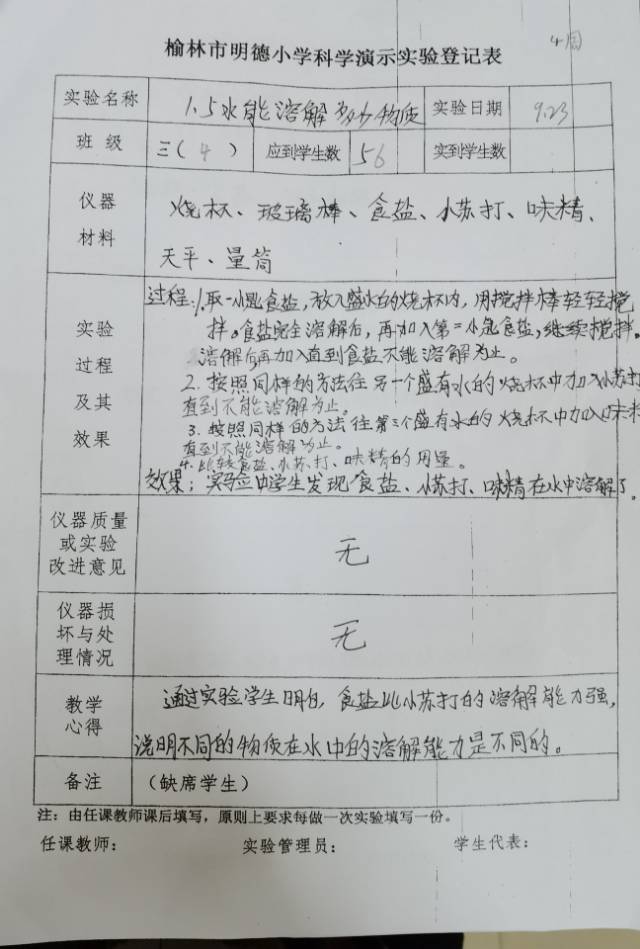 4周
榆林市明德小学科学演示实验登记表
实验名称 1.5水能溶解多少物质 实验日期 9.23
班 级 三( 4 ) 应到学生数 56 实到学生数
仪器
材料
烧杯、玻璃棒、食盐、小苏打、味精、
天平、量筒
实验
过程
及其
效果
过程:1.取一小匙食盐,放入盛水的烧杯内,用搅拌棒轻轻搅
拌。食盐完全溶解后,再加入第二小匙食盐,继续搅拌。
溶解后再加入直到食盐不能溶解为止。
2.按照同样的方法往另一个盛有水的烧杯中加入小苏打
直到不能溶解为止。
3.按照同样的方法往第三个盛有水的烧杯中加入味精
直到不能溶解为止。
4.比较食盐、小苏、打、味精的用量。
效果:实验中学生发现食盐、小苏打、味精在水中溶解了。
仪器质量
或实验
改进意见
无
仪器损
坏与处
理情况
无
教学
心得
通过实验学生明白,食盐比小苏打的溶解能力强,
说明不同的物质在水中的溶解能力是不同的。
备注 (缺席学生)
注:由任课教师课后填写,原则上要求每做一次实验填写一份。
任课教师: 实验管理员: 学生代表: